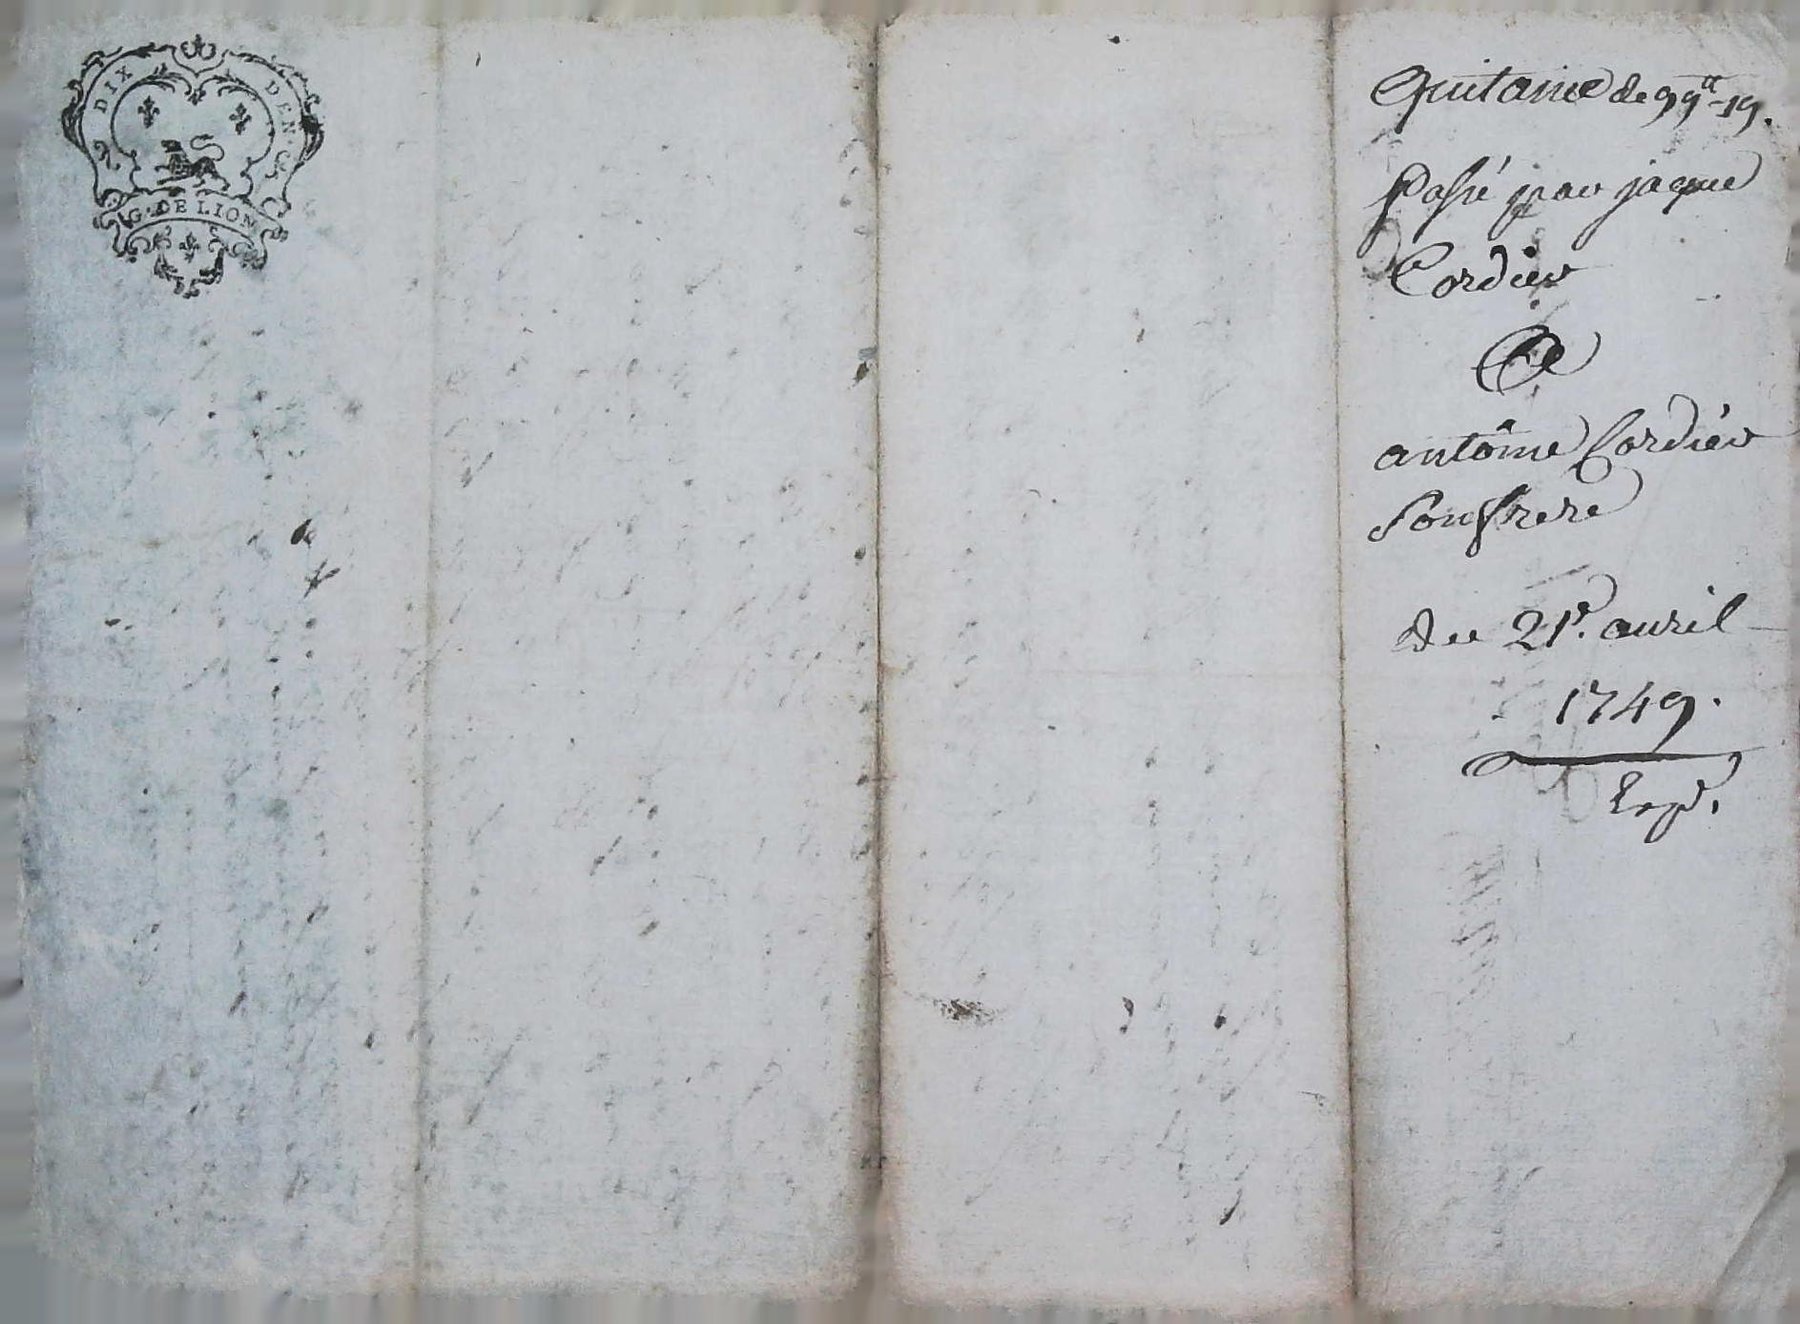 DIX DEN.ˢ
G. DE LION
Quitance de 99ᵗᵗ-19.
Passé par jaque
Cordier
A
antoine Cordier
Son frere
du 21ᵉ. auril
1749.
Exp.